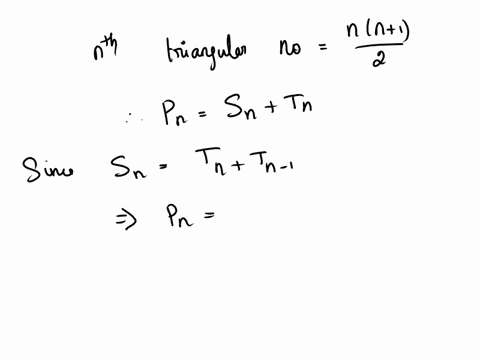 nth triangular no = n(n+1)/2
∴ Pn = Sn + Tn
Since Sn = Tn + Tn-1
⇒ Pn =